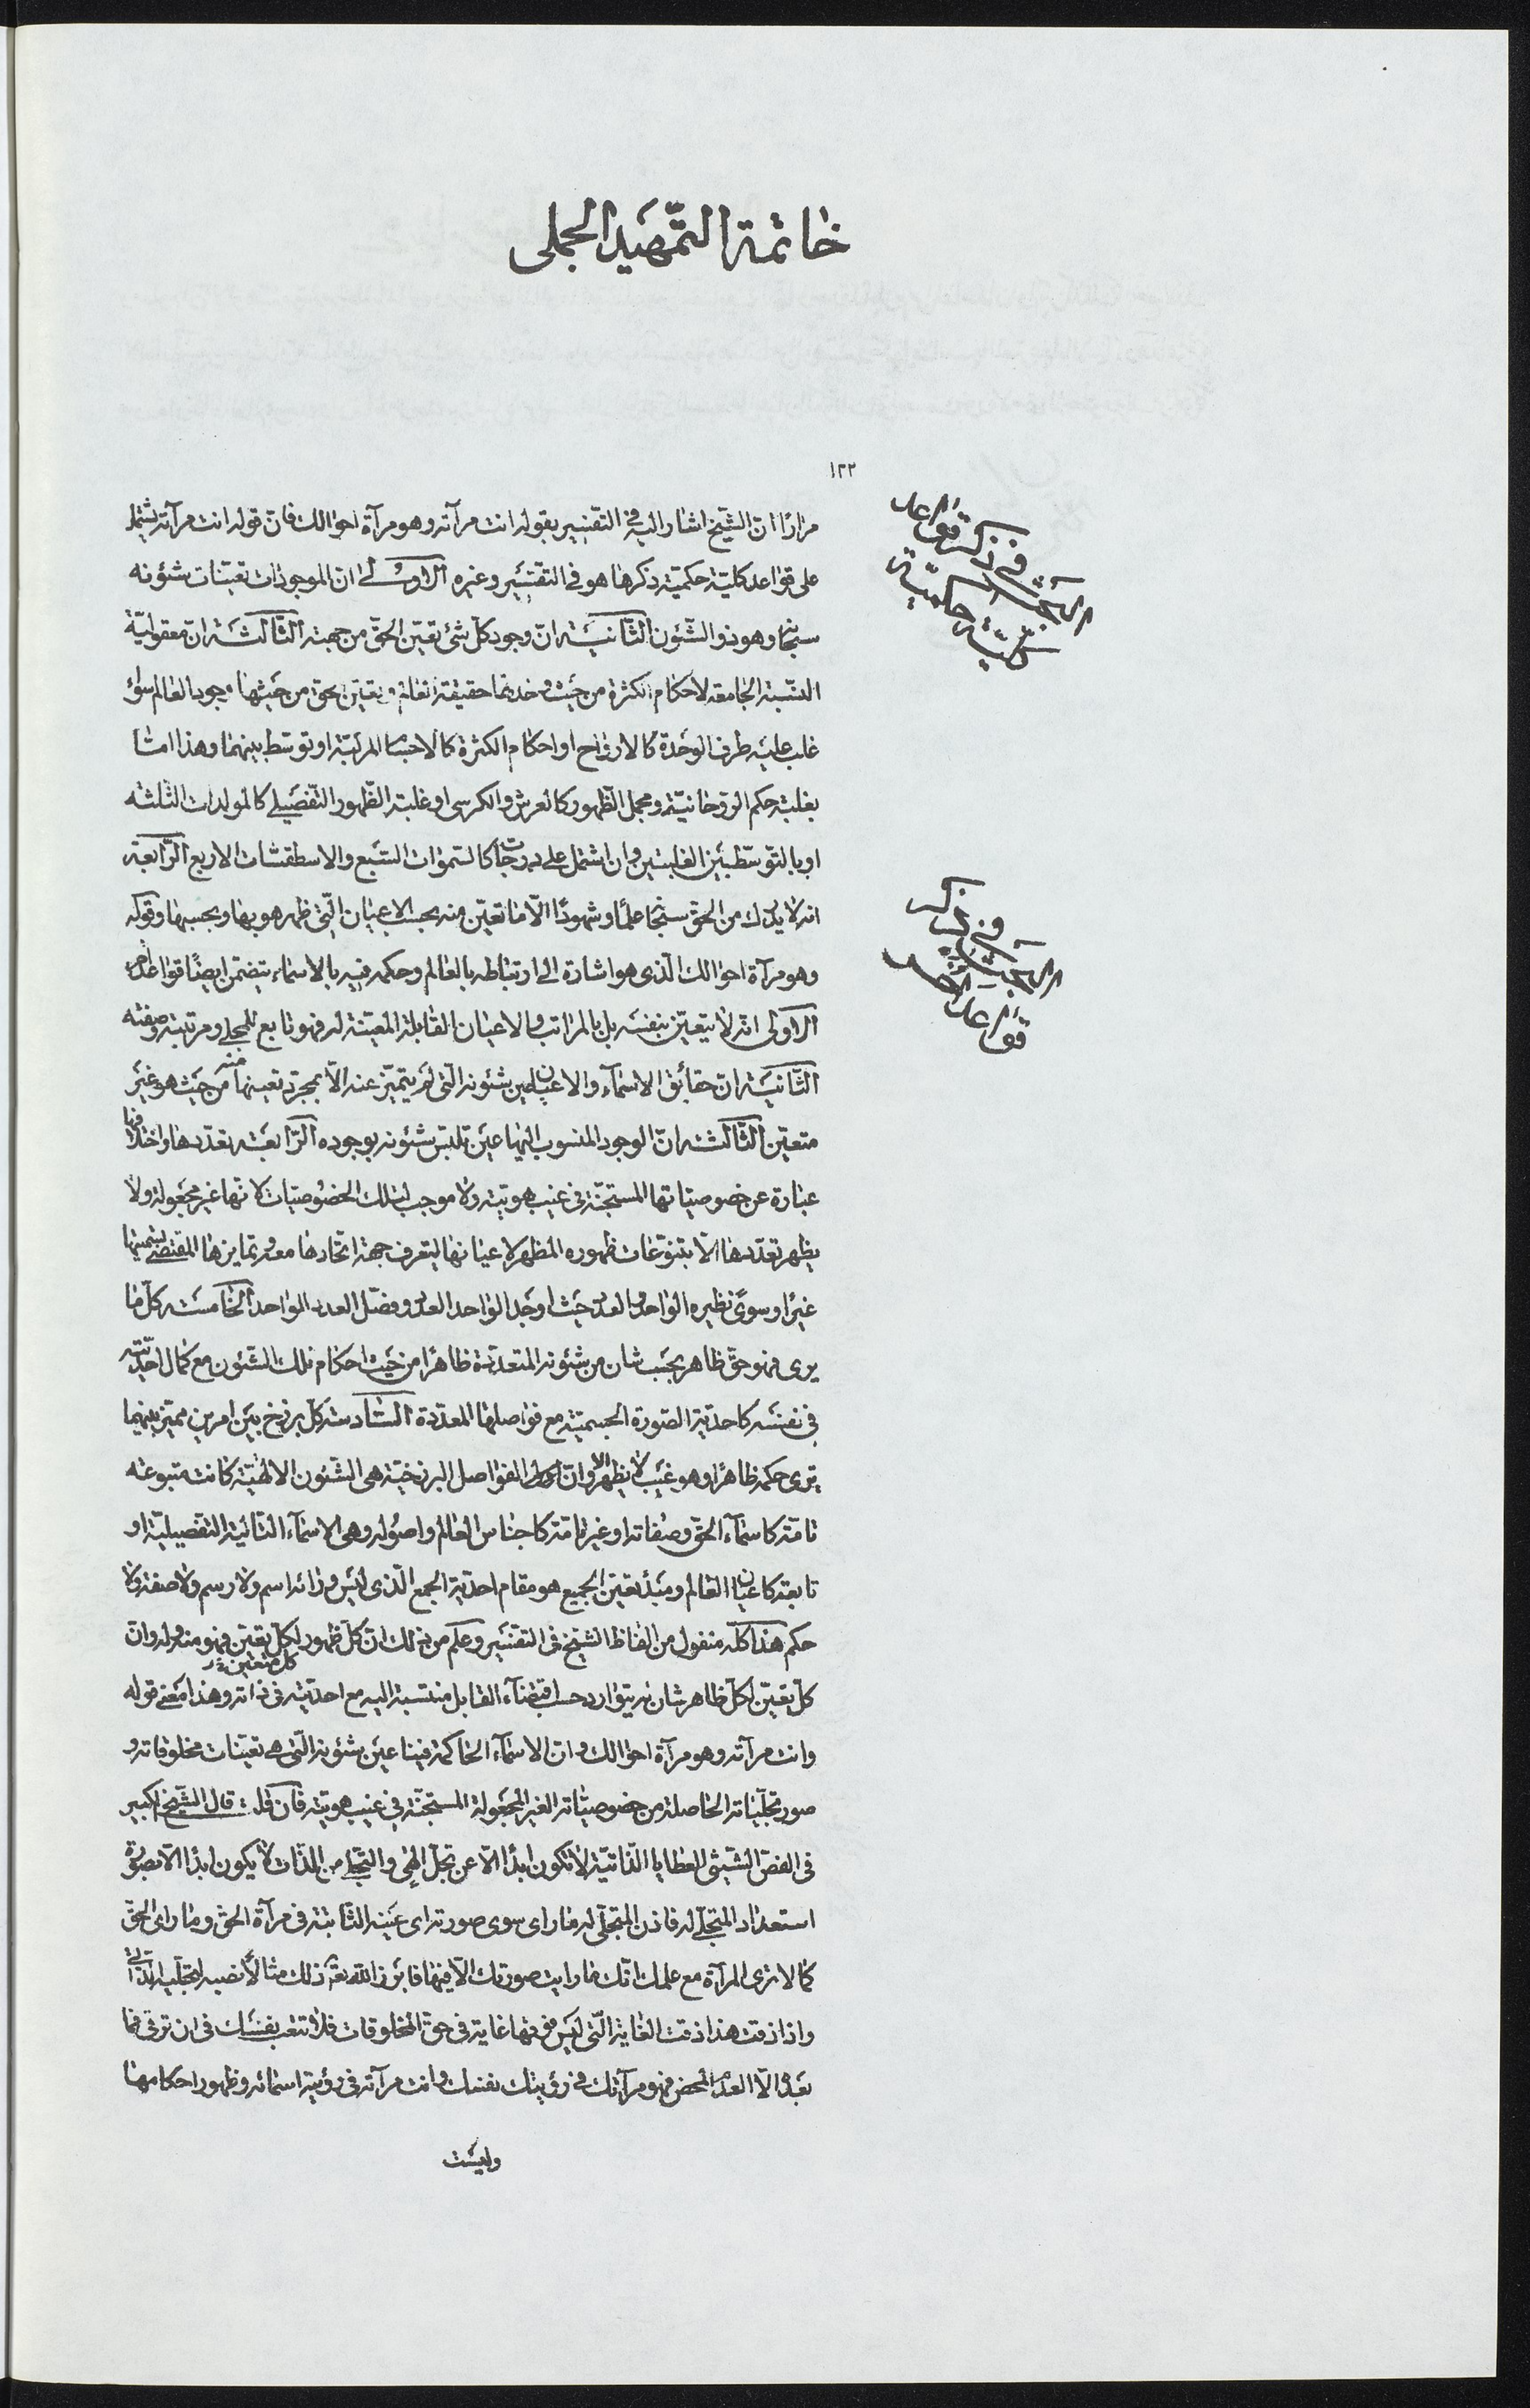 خاتمة التمهيد الجملي
١٢٢
في ذكر قواعد
كلية حكمية
في ذكر
قواعد اخر
مرارا ان الشيخ اشار اليه في التفسير بقوله انت مرآته وهو مرآة احوالك فان قوله انت مرآته يشتمل
على قواعد كلية حكمية ذكرها هو في التفسير وغيره الاولى ان الموجودات تعينات شئونه
سبحانه وهو ذو الشئون الثانية ان وجود كل شئ تعين الحق من جهته الثالثة ان معقولية
النسبة الجامعة لاحكام الكثرة من حيث وحدتها حقيقة العالم وتعين الحق من حيثها وجود العالم سواء
غلب عليه طرف الوحدة كالارواح او احكام الكثرة كالاجسام المركبة او توسط بينهما وهذا اما
بغلبة حكم الروحانية ومجمل الظهور كالعرش والكرسى او غلبة الظهور التفصيلي كالمولدات الثلثة
او بالتوسط بين الغلبتين وان اشتمل على درجات كالسموات السبع والاسطقسات الاربع الرابعة
انه لا يدرك من الحق سبحانه علما وشهودا الا ما تعين منه بحسب الاعيان التي ظهر هو بها وبحسبها وقوله
وهو مرآة احوالك الذى هو اشارة الى ارتباطه بالعالم وحكمه فيه بالاسماء يتضمن ايضا قواعد اخر
الاولى انه لا يتعين بنفسه بل بالمراتب والاعيان القابلة المعينة له فهو تابع للمجلى ومرتبته وصفته
الثانية ان حقائق الاسماء والاعيان عين شئونه التي لم يتميز عنه الا بمجرد تعينها منه من حيث هو غير
متعين الثالثة ان الوجود المنسوب اليها عين تلبس شئونه بوجوده الرابعة تعددها واختلافها
عبارة عن خصوصياتها المستجنة في غيب هويته ولا موجب لتلك الخصوصيات لانها غير مجعولة ولا
يظهر تعددها الا بتنوعات ظهوره المظهر لاعيانها ليتعرف جهة اتحادها معه وتمايزها المقتضي تسميتها
غيرا وسوى نظيره الواحد والعدد حيث اوجد الواحد العدد وفصل العدد الواحد الخامسة كل ما
يرى فهو حق ظاهر بحسب شان من شئونه المتعددة ظاهرا من حيث احكام تلك الشئون مع كمال احديته
في نفسه كاحدية الصورة الجسمية مع فواصلها المعددة السادسة كل برزخ بين امرين مميز بينهما
يرى حكمه ظاهرا وهو غيب لا يظهر وان الفواصل البرزخية هى الشئون الالهية كانت متبوعة
تامة كاسماء الحق وصفاته او غير تامة كاجناس العالم واصوله وهى الاسماء التالية التفصيلية او
تابعة كاعيان العالم ومبدأ تعين الجميع هو مقام احدية الجمع الذى ليس ورائه اسم ولا رسم ولا صفة ولا
حكم هذا كله منقول من الفاظ الشيخ في التفسير وعلم من ذلك ان كل ظهور لكل تعين فهو منه وله وان
كل متعين
كل تعين لكل ظاهر شان له يتوارد حسب اقتضاء القابل منتسبة اليه مع احديته في ذاته وهذا معنى قوله
وانت مرآته وهو مرآة احوالك وان الاسماء الحاكمة فينا عين شئونه التي هي تعينات مخلوقاته و
صور تجلياته الحاصلة من خصوصياته الغير المجعولة المستجنة في غيب هويته فان قلت قال الشيخ الكبير
في الفص الشيثى العطايا الذاتية لا تكون ابدا الا عن تجل الهى والتجلى من الذات لا يكون ابدا الا بصورة
استعداد المتجلى له فاذن المتجلى له ما راى سوى صورته اى عينه الثابتة في مرآة الحق وما راى الحق
كما لا ترى المرآة مع علمك انك ما رايت صورتك الا فيها فابرز الله ذلك مثالا نصبه لتجليه الذاتى
واذا ذقت هذا ذقت الغاية التي ليس فوقها غاية في حق المخلوقات فلا تتعب نفسك في ان ترقى فما
بعده الا العدم المحض فهو مرآتك في رؤيتك نفسك وانت مرآته في رؤيته اسمائه وظهور احكامها
وليست